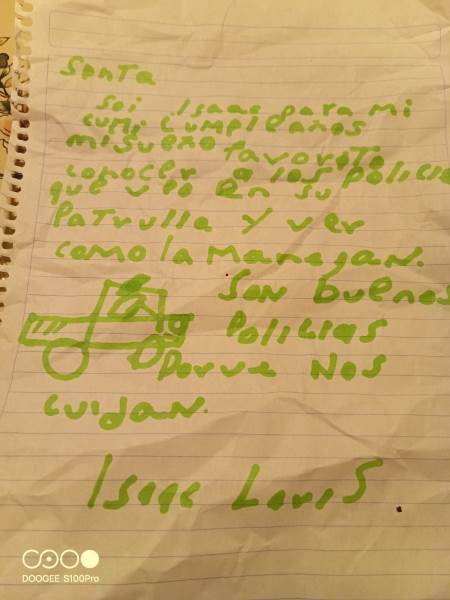 Santa
Soi Isaac para mi
cumi cumpleaños
mi sueño favoroto
conocer a los policia
que veo en su
Patrulla y ver
como la manejan.
Son buenos
Policias
Porue Nos
cuidan.
Isaac Louis
DOOGEE S100Pro